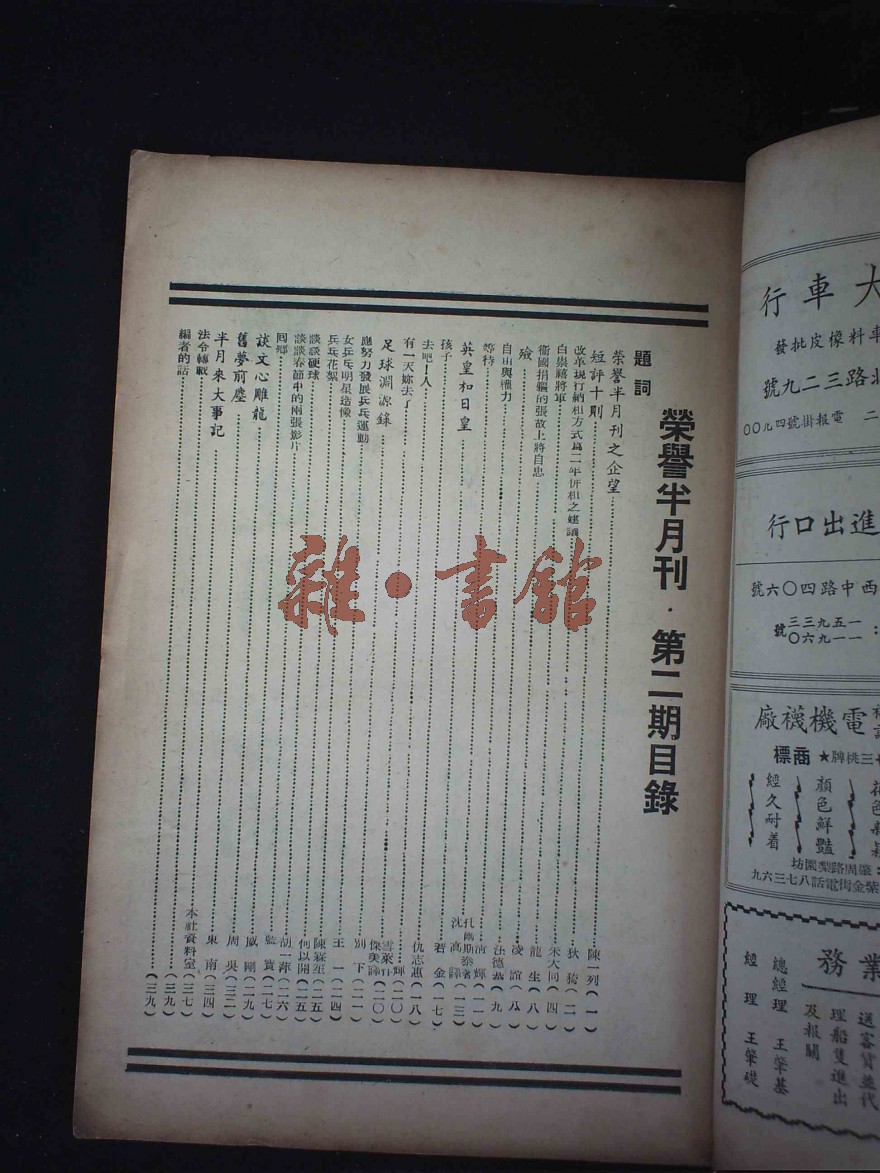 榮譽半月刊·第二期目錄
題詞
榮譽半月刊之企望 陳一列(一)
短評十則 狄 (二)
改革現行納租方式為二年併租之建議 朱大同(四)
白崇禧將軍 龍生(八)
衞國捐軀的張故上將自忠 凌 (八)
險 法德 (九)
自由與權力 清輝(一一)
等待
英皇和日皇 沈高譯(一三)
孩子 若金(一七)
去吧!人 仇志 (一八)
有一天妳去了 輝(二〇)
足球淵源錄 傑美譯(二〇)
應努力發展乒乓運動 別下(二一)
女乒乓明星造像
乒乓花絮 王一(二四)
談談硬球 陳霖 (二五)
談談春節中的兩張影片 何以聞(二五)
回鄉 胡一萍(二六)
談文心雕龍 藍 (二七)
舊夢前塵 威剛(二九)
半月來大事記 周吳(三二)
法令轉載 東南(三四)
編者的話 本社資料室(三七)
(三九)
(三九)
雜·書舘
大車行
車料橡皮批發
北路三二九號
二 電報掛號四九〇〇
進出口行
西中路四〇六號
一五九三三
一一九六〇號
電機襪廠
三桃牌★商標
顏色鮮豔
經久耐着
肇周路梨園坊
紫金街電話八七三六九
業務
送客貨並代
理船隻進出
及報關
總經理 王肇基
經理 王肇礎